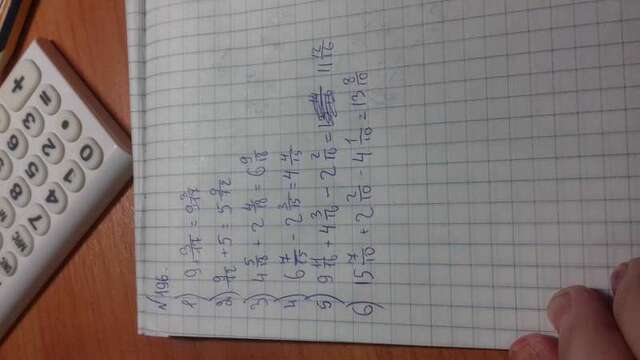 MRC
7 8 9
4 5 6
1 2 3
0 • = +
№196.
1) 9 + 3/17 = 9 3/17
2) 9/12 + 5 = 5 9/12
3) 4 5/18 + 2 4/18 = 6 9/18
4) 6 7/15 - 2 3/15 = 4 4/15
5) 9 11/16 + 4 3/16 - 2 2/16 = 11 12/16
6) 15 7/10 + 2 2/10 - 4 1/10 = 13 8/10